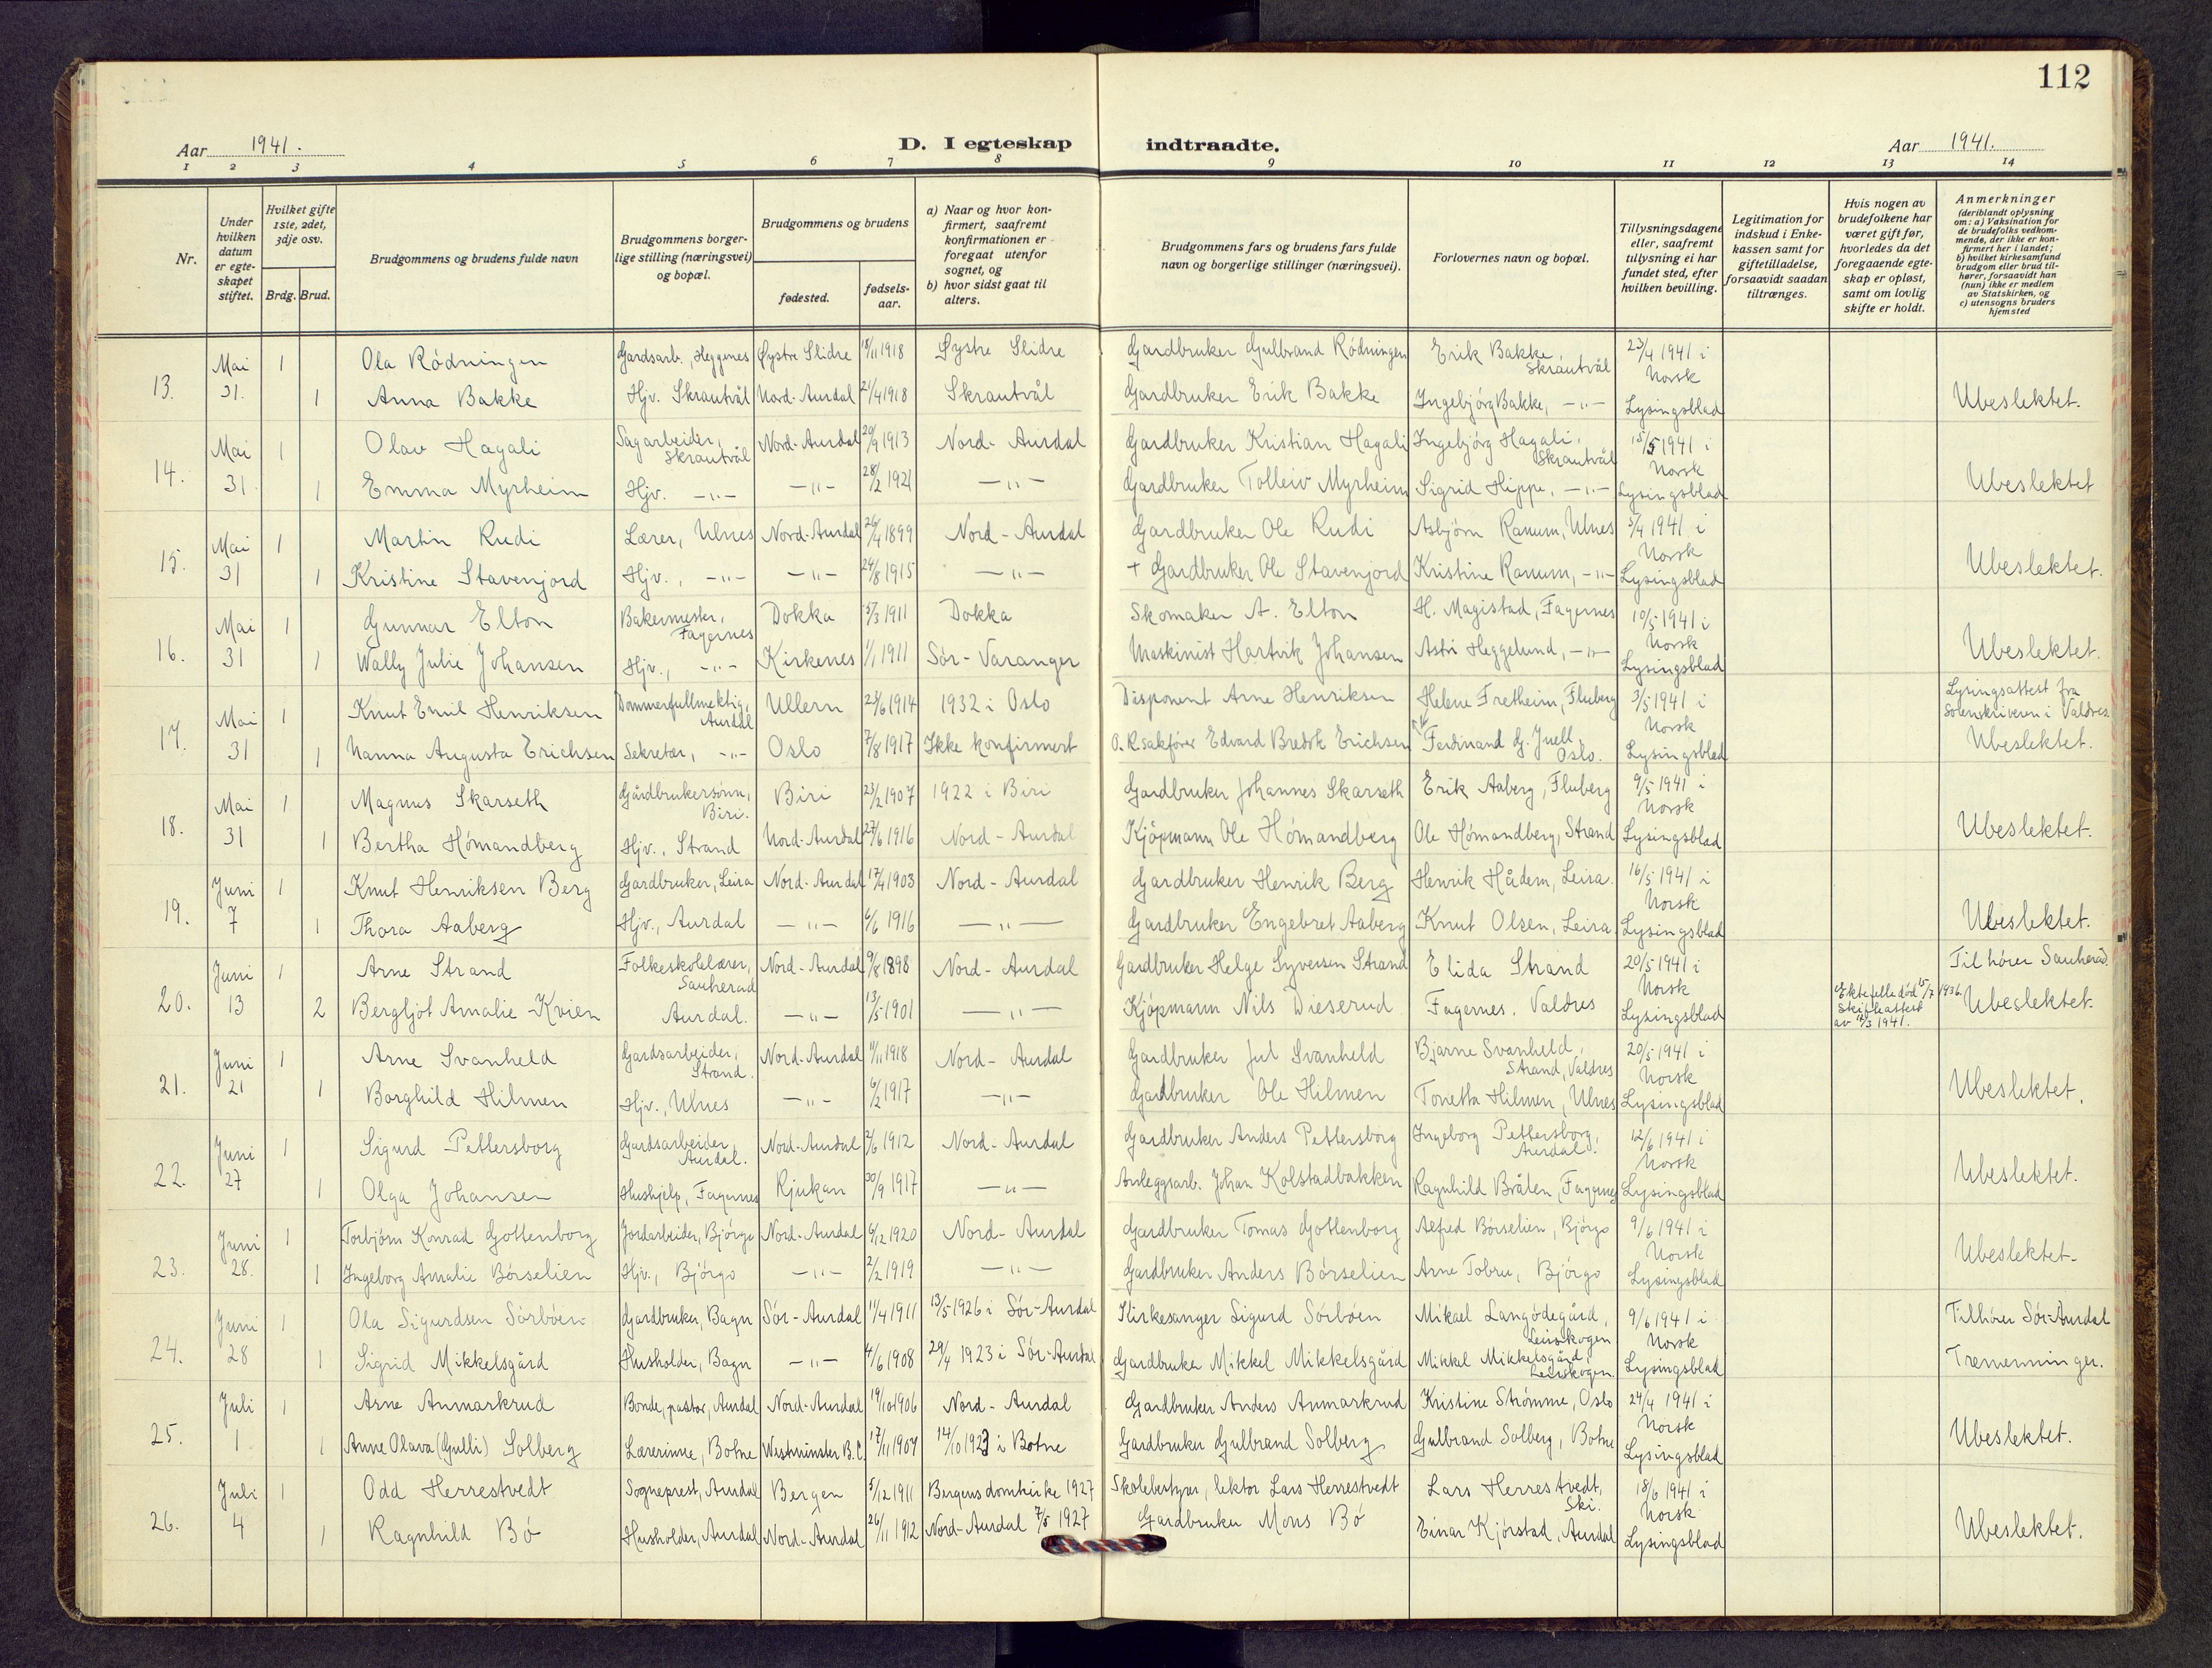 112
Aar 1941.
D. I egteskap indtraadte.
Aar 1941.
1 2 3 4 5 6 7 8 9 10 11 12 13 14
Nr.
Under hvilken datum er egteskapet stiftet.
Hvilket gifte 1ste, 2det, 3dje osv.
Brdg. Brud.
Brudgommens og brudens fulde navn
Brudgommens borgerlige stilling (næringsvei) og bopæl.
Brudgommens og brudens
fødested.
fødselsaar.
a) Naar og hvor konfirmert, saafremt konfirmationen er foregaat utenfor sognet, og
b) hvor sidst gaat til alters.
Brudgommens fars og brudens fars fulde navn og borgerlige stillinger (næringsvei).
Forlovernes navn og bopæl.
Tillysningsdagene eller, saafremt tillysning ei har fundet sted, efter hvilken bevilling.
Legitimation for indskud i Enkekassen samt for giftetilladelse, forsaavidt saadan tiltrænges.
Hvis nogen av brudefolkene har været gift før, hvorledes da det foregaaende egteskap er opløst, samt om lovlig skifte er holdt.
Anmerkninger
(deriblandt oplysning om: a) Vaksination for de brudefolks vedkommende, der ikke er konfirmert her i landet; b) hvilket kirkesamfund brudgom eller brud tilhører, forsaavidt han (hun) ikke er medlem av Statskirken, og c) utensogns bruders hjemsted
13. Mai 31. 1 Ola Rödningen Gardsarb., Heggenes Øystre Slidre 18/11 1918 Øystre Slidre Gardbruker Gulbrand Rödningen Erik Bakke, Skrautvål 23/4 1941 i Norsk
1 Anna Bakke Hjv. Skrautvål Nord-Aurdal 21/4 1918 Skrautvål Gardbruker Erik Bakke Ingebjörg Bakke, -"- Lysingsblad Ubeslektet.
14. Mai 31. 1 Olav Hagali Sagarbeider, Skrautvål Nord-Aurdal 20/9 1913 Nord-Aurdal Gardbruker Kristian Hagali Ingebjörg Hagali, Skrautvål 15/5 1941 i Norsk
1 Emma Myrheim Hjv. -"- -"- 28/2 1921 -"- Gardbruker Tolleiv Myrheim Sigrid Hippe, -"- Lysingsblad Ubeslektet
15. Mai 31 1 Martin Rudi Lærer, Ulnes Nord-Aurdal 26/4 1899 Nord-Aurdal Gardbruker Ole Rudi Asbjörn Ranum, Ulnes 5/4 1941 i Norsk
1 Kristine Stavenjord Hjv., -"- -"- 24/8 1915 -"- + Gardbruker Ole Stavenjord Kristine Ranum, -"- Lysingsblad Ubeslektet.
16. Mai 31 1 Gunnar Elton Bakermester, Fagernes Dokka 15/3 1911 Dokka Skomaker A. Elton H. Magistad, Fagernes 10/5 1941 i Norsk
1 Wally Julie Johansen Hjv., -"- Kirkenes 1/1 1911 Sör-Varanger Maskinist Hartvik Johansen Astri Heggelund, -"- Lysingsblad Ubeslektet.
17. Mai 31 1 Knut Emil Henriksen Dommerfullmektig, Aurdal Ullern 23/6 1914 1932 i Oslo Disponent Arne Henriksen Helene Fretheim, Fluberg 3/5 1941 i Norsk Lysingsattest fra Sorenskriveren i Valdres.
1 Nanna Augusta Erichsen Sekretær, -"- Oslo 7/8 1917 Ikke konfirmert O.R.sakförer Edvard Bredok Erichsen Ferdinand G. Juell, Oslo. Lysingsblad Ubeslektet.
18. Mai 31 1 Magnus Skarseth Gårdbrukersönn, Biri. Biri 23/2 1907 1922 i Biri Gardbruker Johannes Skarseth Erik Aaberg, Fluberg 9/5 1941 i Norsk
1 Bertha Hömandberg Hjv., Strand Nord-Aurdal 27/6 1916 Nord-Aurdal Kjöpmann Ole Hömandberg Ole Hömandberg, Strand Lysingsblad Ubeslektet.
19. Juni 7 1 Knut Henriksen Berg Gardbruker, Leira Nord-Aurdal 17/4 1903 Nord-Aurdal Gardbruker Henrik Berg Henrik Hådem, Leira. 16/5 1941 i Norsk
1 Thora Aaberg Hjv., Aurdal -"- 6/6 1916 -"- Gardbruker Engebret Aaberg Knut Olsen, Leira Lysingsblad Ubeslektet.
20. Juni 13 1 Arne Strand Folkeskolelærer, Sauherad Nord-Aurdal 9/8 1898 Nord-Aurdal Gardbruker Helge Syversen Strand Elida Strand 20/5 1941 i Norsk Tilhörer Sauherad.
2 Bergljot Amalie Kvien Aurdal. -"- 13/5 1901 -"- Kjöpmann Nils Dieserud Fagernes, Valdres Lysingsblad Ektefelle död 15/7 1936. Skifteattest av 14/3 1941. Ubeslektet.
21. Juni 21 1 Arne Svanheld Gardsarbeider, Strand. Nord-Aurdal 11/11 1918 Nord-Aurdal Gardbruker Jul Svanheld Bjarne Svanheld, Strand, Valdres 20/5 1941 i Norsk
1 Borghild Hilmen Hjv., Ulnes -"- 6/2 1917 -"- Gardbruker Ole Hilmen Tonetta Hilmen, Ulnes Lysingsblad Ubeslektet.
22. Juni 27 1 Sigurd Pettersborg Gardsarbeider, Aurdal. Nord-Aurdal 2/6 1912 Nord-Aurdal Gardbruker Anders Pettersborg Ingeborg Pettersborg, Aurdal. 12/6 1941 i Norsk
1 Olga Johansen Hushjelp, Fagernes Rjukan 30/9 1917 -"- Anleggsarb. Johan Kolstadbakken Ragnhild Bråten, Fagernes Lysingsblad Ubeslektet.
23. Juni 28. 1 Torbjörn Konrad Gottenborg Jordarbeider, Björgo Nord-Aurdal 6/12 1920 Nord-Aurdal Gardbruker Tomas Gottenborg Alfred Börselien, Björgo 9/6 1941 i Norsk
1 Ingeborg Amalie Börselien Hjv., Björgo -"- 2/2 1919 -"- Gardbruker Anders Börselien Arne Tobru, Björgo Lysingsblad Ubeslektet.
24. Juni 28 1 Ola Sigurdsen Sörböen Gardbruker, Bagn Sör-Aurdal 11/4 1911 13/5 1926 i Sör-Aurdal Kirkesanger Sigurd Sörböen Mikael Langödegård, Leirskogen 9/6 1941 i Norsk Tilhörer Sör-Aurdal
1 Sigrid Mikkelsgård Husholder, Bagn -"- 4/6 1908 29/4 1923 i Sör-Aurdal Gardbruker Mikkel Mikkelsgård Mikkel Mikkelsgård, Leirskogen. Lysingsblad Tremenninger.
25. Juli 1. 1 Arne Anmarkrud Bonde, pastor, Aurdal Nord-Aurdal 19/10 1906 Nord-Aurdal Gardbruker Anders Anmarkrud Kristine Strömme, Oslo 24/4 1941 i Norsk
1 Anne Olava (Gulli) Solberg Lærerinne, Botne Westminster B.C. 17/11 1907 14/10 1923 i Botne Gardbruker Gulbrand Solberg Gulbrand Solberg, Botne Lysingsblad Ubeslektet.
26. Juli 4 1 Odd Herrestvedt Sogneprest, Aurdal Bergen 5/12 1911 Bergens domkirke 1927 Skolebestyrer, lektor Lars Herrestvedt Lars Herrestvedt, Ski. 18/6 1941 i Norsk
1 Ragnhild Bö Husholder, Aurdal Nord-Aurdal 26/11 1912 Nord-Aurdal 7/8 1927 Gardbruker Mons Bö Einar Kjörstad, Aurdal Lysingsblad Ubeslektet.